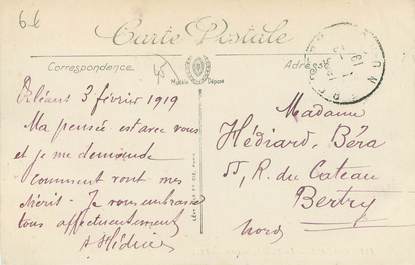 6 €
Carte Postale
Correspondance
Modèle Déposé
Adresse
Orléans 3 février 1919
Ma pensée est avec vous
et je me demande
comment vont mes
chéris - Je vous embrasse
tous affectueusement
A Hédiard
Madame
Hédiard-Béra
55, R. du Cateau
Bertry
Nord